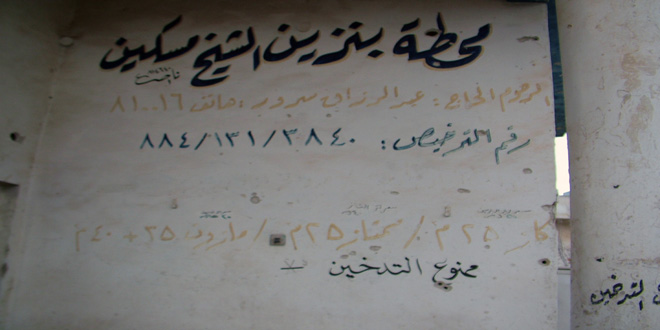 محطة بنزين الشيخ مسكين
المرحوم الحاج: عبد الرزاق سرور: هاتف ٨١٠٠١٦
رقم الترخيص: ٨٨٤/١٣١/٣٨٤٠
كاز ٢٥ م / ممتاز ٢٥ م / مازوت ٢٥ + ٤٠ م
ممنوع التدخين
التدخين